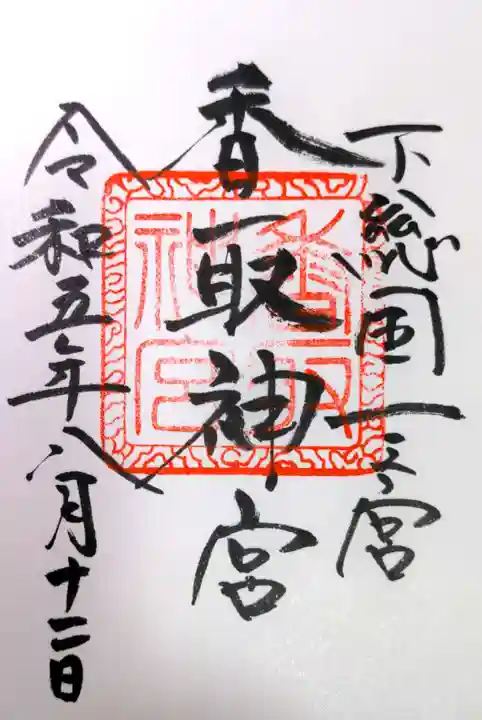 下総国一之宮
香取神宮
香取神宮
令和五年八月十二日